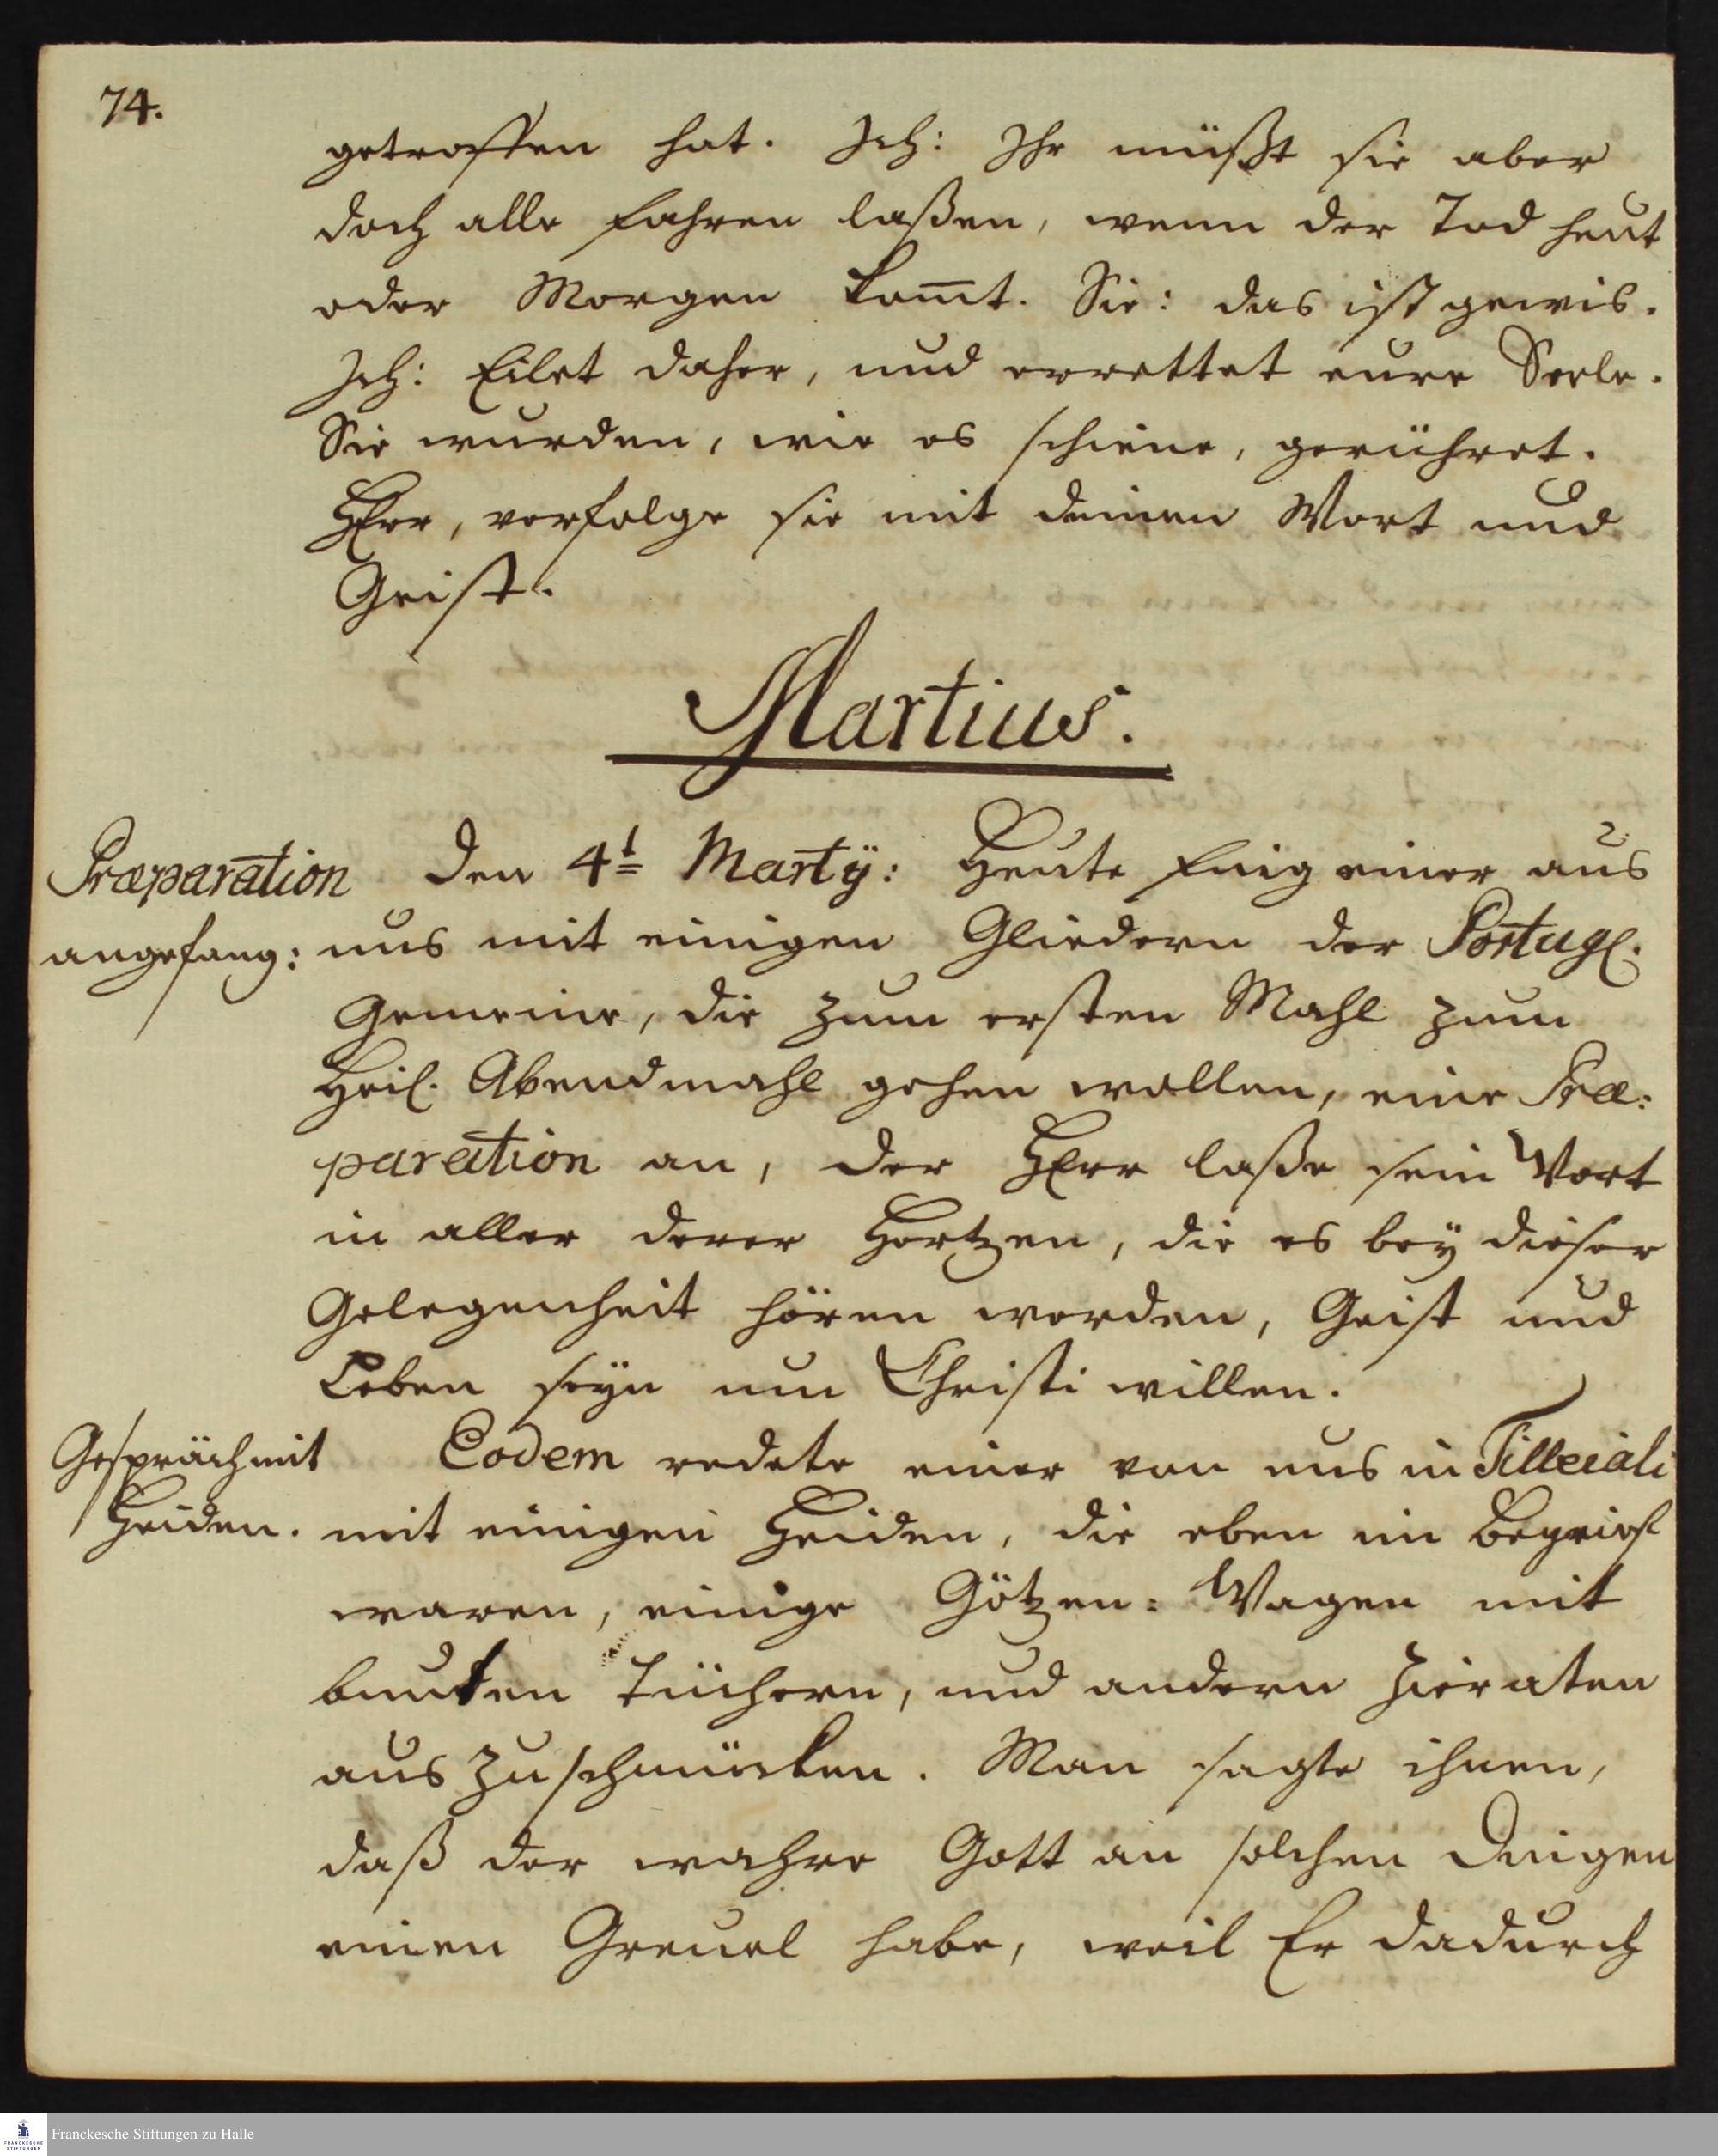 74.
getroffen hat. Ich: Ihr müßt sie aber
doch alle fahren laßen, wenn der Tod heut
oder Morgen kom̅t. Sie: das ist gewis.
Ich: Eilet daher, und errettet eure Seele.
Sie wurden, wie es schiene, gerühret.
HErr, verfolge sie mit deinen Wort und
Geist.
Martius.
Præparation
angefang:
den 4t Martÿ: Heute fing einer aus
uns mit einigen Gliedern der Portugl.
Gemeine, die zum ersten Mahl zum
Heil. Abendmahl gehen wollen, eine Præ:
paration an, der HErr laße sein Wort
in aller derer Hertzen, die es beÿ dieser
Gelegenheit hören werden, Geist und
Leben seÿn um Christi willen.
Gespräch mit
Heiden.
Eodem redete einer von uns in Tilleiali
mit einigen Heiden, die eben im Begriff
waren, einige Götzen: Wagen mit
bunten Tüchern, und andern Zieraten
aus zu schmücken. Man sagte ihnen,
daß der wahre Gott an solchen Dingen
einen Greuel habe, weil Er dadurch
FRANCKESCHE
STIFTUNGEN
Franckesche Stiftungen zu Halle